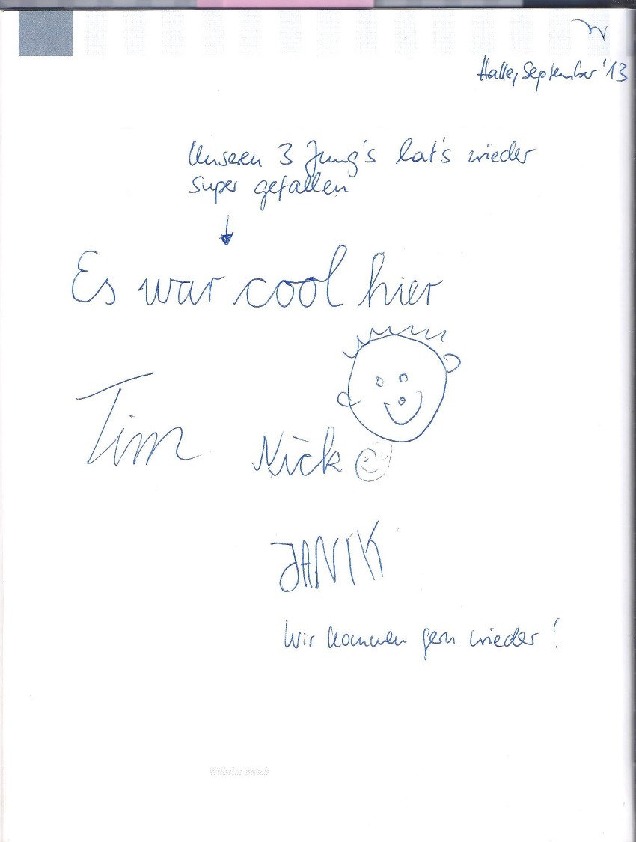 Halle, September '13
Unseren 3 Jung's hat's wieder
super gefallen
Es war cool hier
Tim
Nick
JANIK
Wir kommen gern wieder!